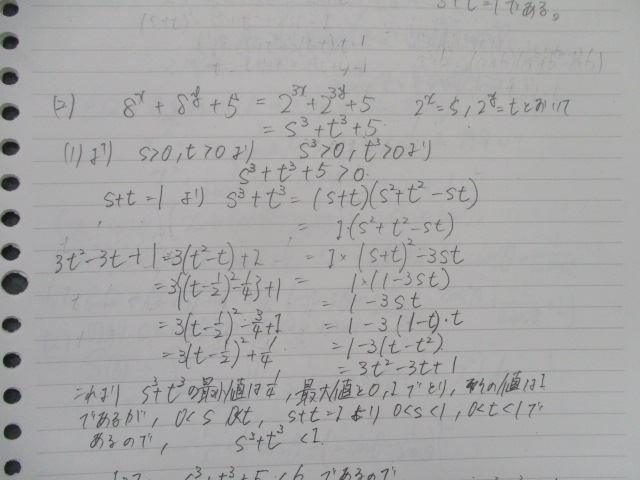 s+t=1である。
(2) 8^x + 8^y + 5 = 2^{3x} + 2^{3y} + 5 2^x = s, 2^y = tとおいて
= s^3 + t^3 + 5
(1)より s>0, t>0より s^3>0, t^3>0より
s^3 + t^3 + 5 > 0
s+t=1 より s^3 + t^3 = (s+t)(s^2 + t^2 - st)
= 1・(s^2 + t^2 - st)
= 1 × (s+t)^2 - 3st
= 1×(1-3st)
= 1-3st
= 1-3(1-t)・t
= 1-3(t-t^2)
= 3t^2 - 3t + 1
3t^2 - 3t + 1 = 3(t^2 - t) + 1
= 3{(t-1/2)^2 - 1/4} + 1
= 3(t-1/2)^2 - 3/4 + 1
= 3(t-1/2)^2 + 1/4
これより s^3+t^3の最小値は1/4, 最大値を0, 1でとり, その値は1
であるが, 0<s, 0<t, s+t=1より 0<s<1, 0<t<1で
あるので, s^3+t^3 <1.
s^3+t^3+5<6 であるので